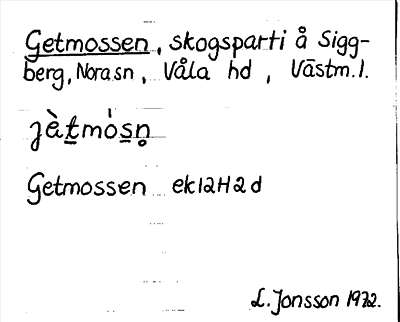 Getmossen, skogsparti å Sigg-
berg, Nora sn, Våla hd, Västm. l.
jὰt̲mòs̲n̥
Getmossen ek 12H2d
L. Jonsson 1972.